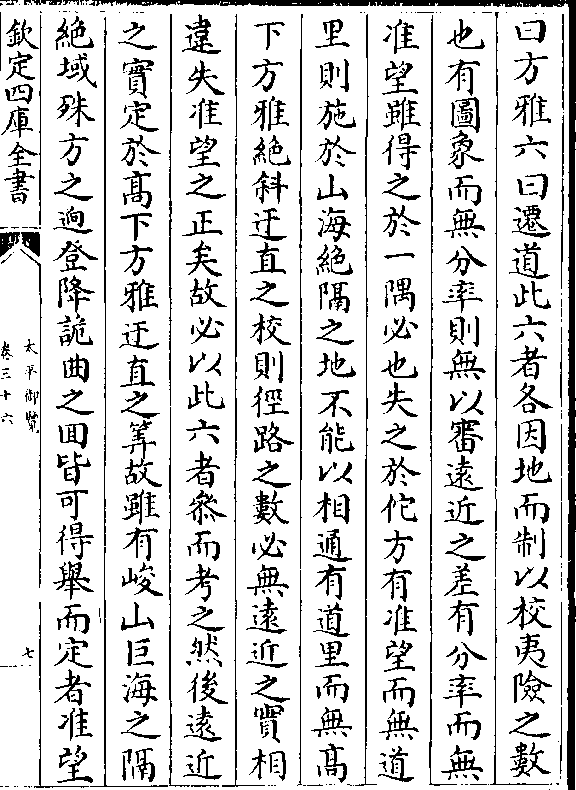 曰方雅六曰遷道此六者各因地而制以校夷險之數
也有圖象而無分率則無以審遠近之差有分率而無
准望雖得之於一隅必也失之於佗方有准望而無道
里則施於山海絶隔之地不能以相通有道里而無髙
下方雅絶斜迂直之校則徑路之數必無遠近之實相
違失准望之正矣故必以此六者叅而考之然後遠近
之實定於髙下方雅迂直之筭故雖有峻山巨海之隔
絶域殊方之逈登降詭曲之囬皆可得舉而定者准望
欽定四庫全書
太平御覽
卷三十六
七